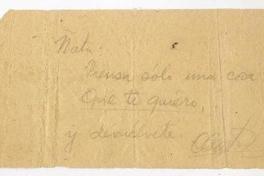 Natu:
Piensa sólo una cosa
Que te quiero,
y devuelvete.